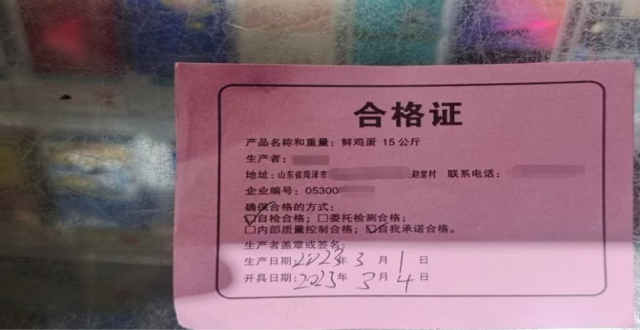 合格证
产品名称和重量：鲜鸡蛋 15公斤
生产者：
地址：山东省菏泽市 赵堂村 联系电话：
企业编号：05300
确保合格的方式：
☑自检合格；□委托检测合格；
□内部质量控制合格；☑自我承诺合格。
生产者盖章或签名：
生产日期：2023年3月1日
开具日期：2023年3月4日